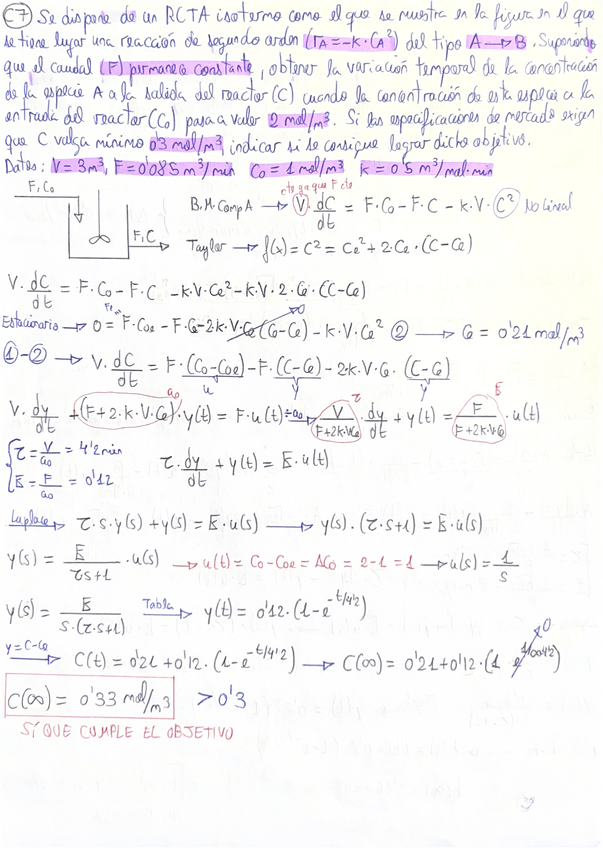 C7 Se dispone de un RCTA isotermo como el que se muestra en la figura en el que
se tiene lugar una reacción de segundo orden (rA = -k·CA²) del tipo A → B. Suponiendo
que el caudal (F) permanece constante, obtener la variación temporal de la concentración
de la especie A a la salida del reactor (C) cuando la concentración de esta especie a la
entrada del reactor (Co) pasa a valer 2 mol/m³. Si las especificaciones de mercado exigen
que C valga mínimo 0'3 mol/m³, indicar si se consigue lograr dicho objetivo.
Datos: V = 3m³, F = 0'085 m³/min Co = 1 mol/m³ k = 0'5 m³/mol·min
cte ya que F cte
F, Co
B.M. Comp A → V · dC/dt = F·Co - F·C - k·V·C² No Lineal
F, C
Taylor → f(x) = C² = Ce² + 2·Ce·(C-Ce)
V· dC/dt = F·Co - F·C - k·V·Ce² - k·V·2·Ce·(C-Ce) ①
Estacionario → 0 = F·Coe - F·Ce - 2·k·V·Ce(Ce-Ce) - k·V·Ce² ② → Ce = 0'21 mol/m³
0
①-② → V· dC/dt = F·(Co-Coe) - F·(C-Ce) - 2·k·V·Ce·(C-Ce)
u y y
V· dy/dt + (F+2·k·V·Ce)·y(t) = F·u(t) ÷a₀ → V/(F+2·k·V·Ce) · dy/dt + y(t) = F/(F+2·k·V·Ce) · u(t)
a₀ τ K
τ = V/a₀ = 4'2 min
K = F/a₀ = 0'12
τ· dy/dt + y(t) = K·u(t)
Laplace → τ·s·y(s) + y(s) = K·u(s) → y(s)·(τ·s+1) = K·u(s)
y(s) = K/(τs+1) · u(s) → u(t) = Co - Coe = ΔCo = 2-1 = 1 → u(s) = 1/s
y(s) = K/(s·(τ·s+1)) Tabla → y(t) = 0'12·(1-e^(-t/4'2))
y = C-Ce → C(t) = 0'21 + 0'12·(1-e^(-t/4'2)) → C(∞) = 0'21 + 0'12·(1-e^(-∞/4'2))
0
C(∞) = 0'33 mol/m³ > 0'3
SÍ QUE CUMPLE EL OBJETIVO